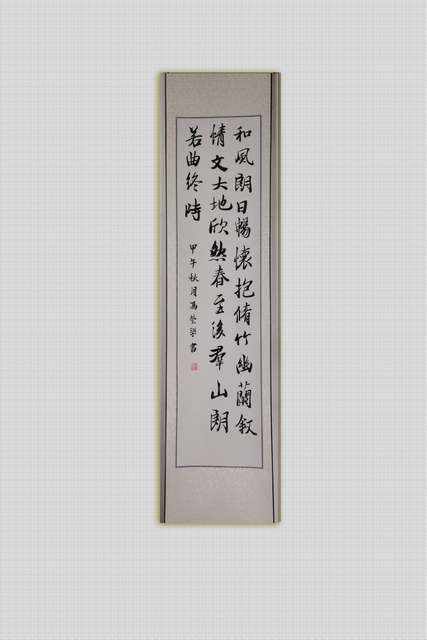 和風朗日暢懷抱脩竹幽蘭叙
情文大地欣然春至後群山朗
若曲終時
甲午秋月馮
書